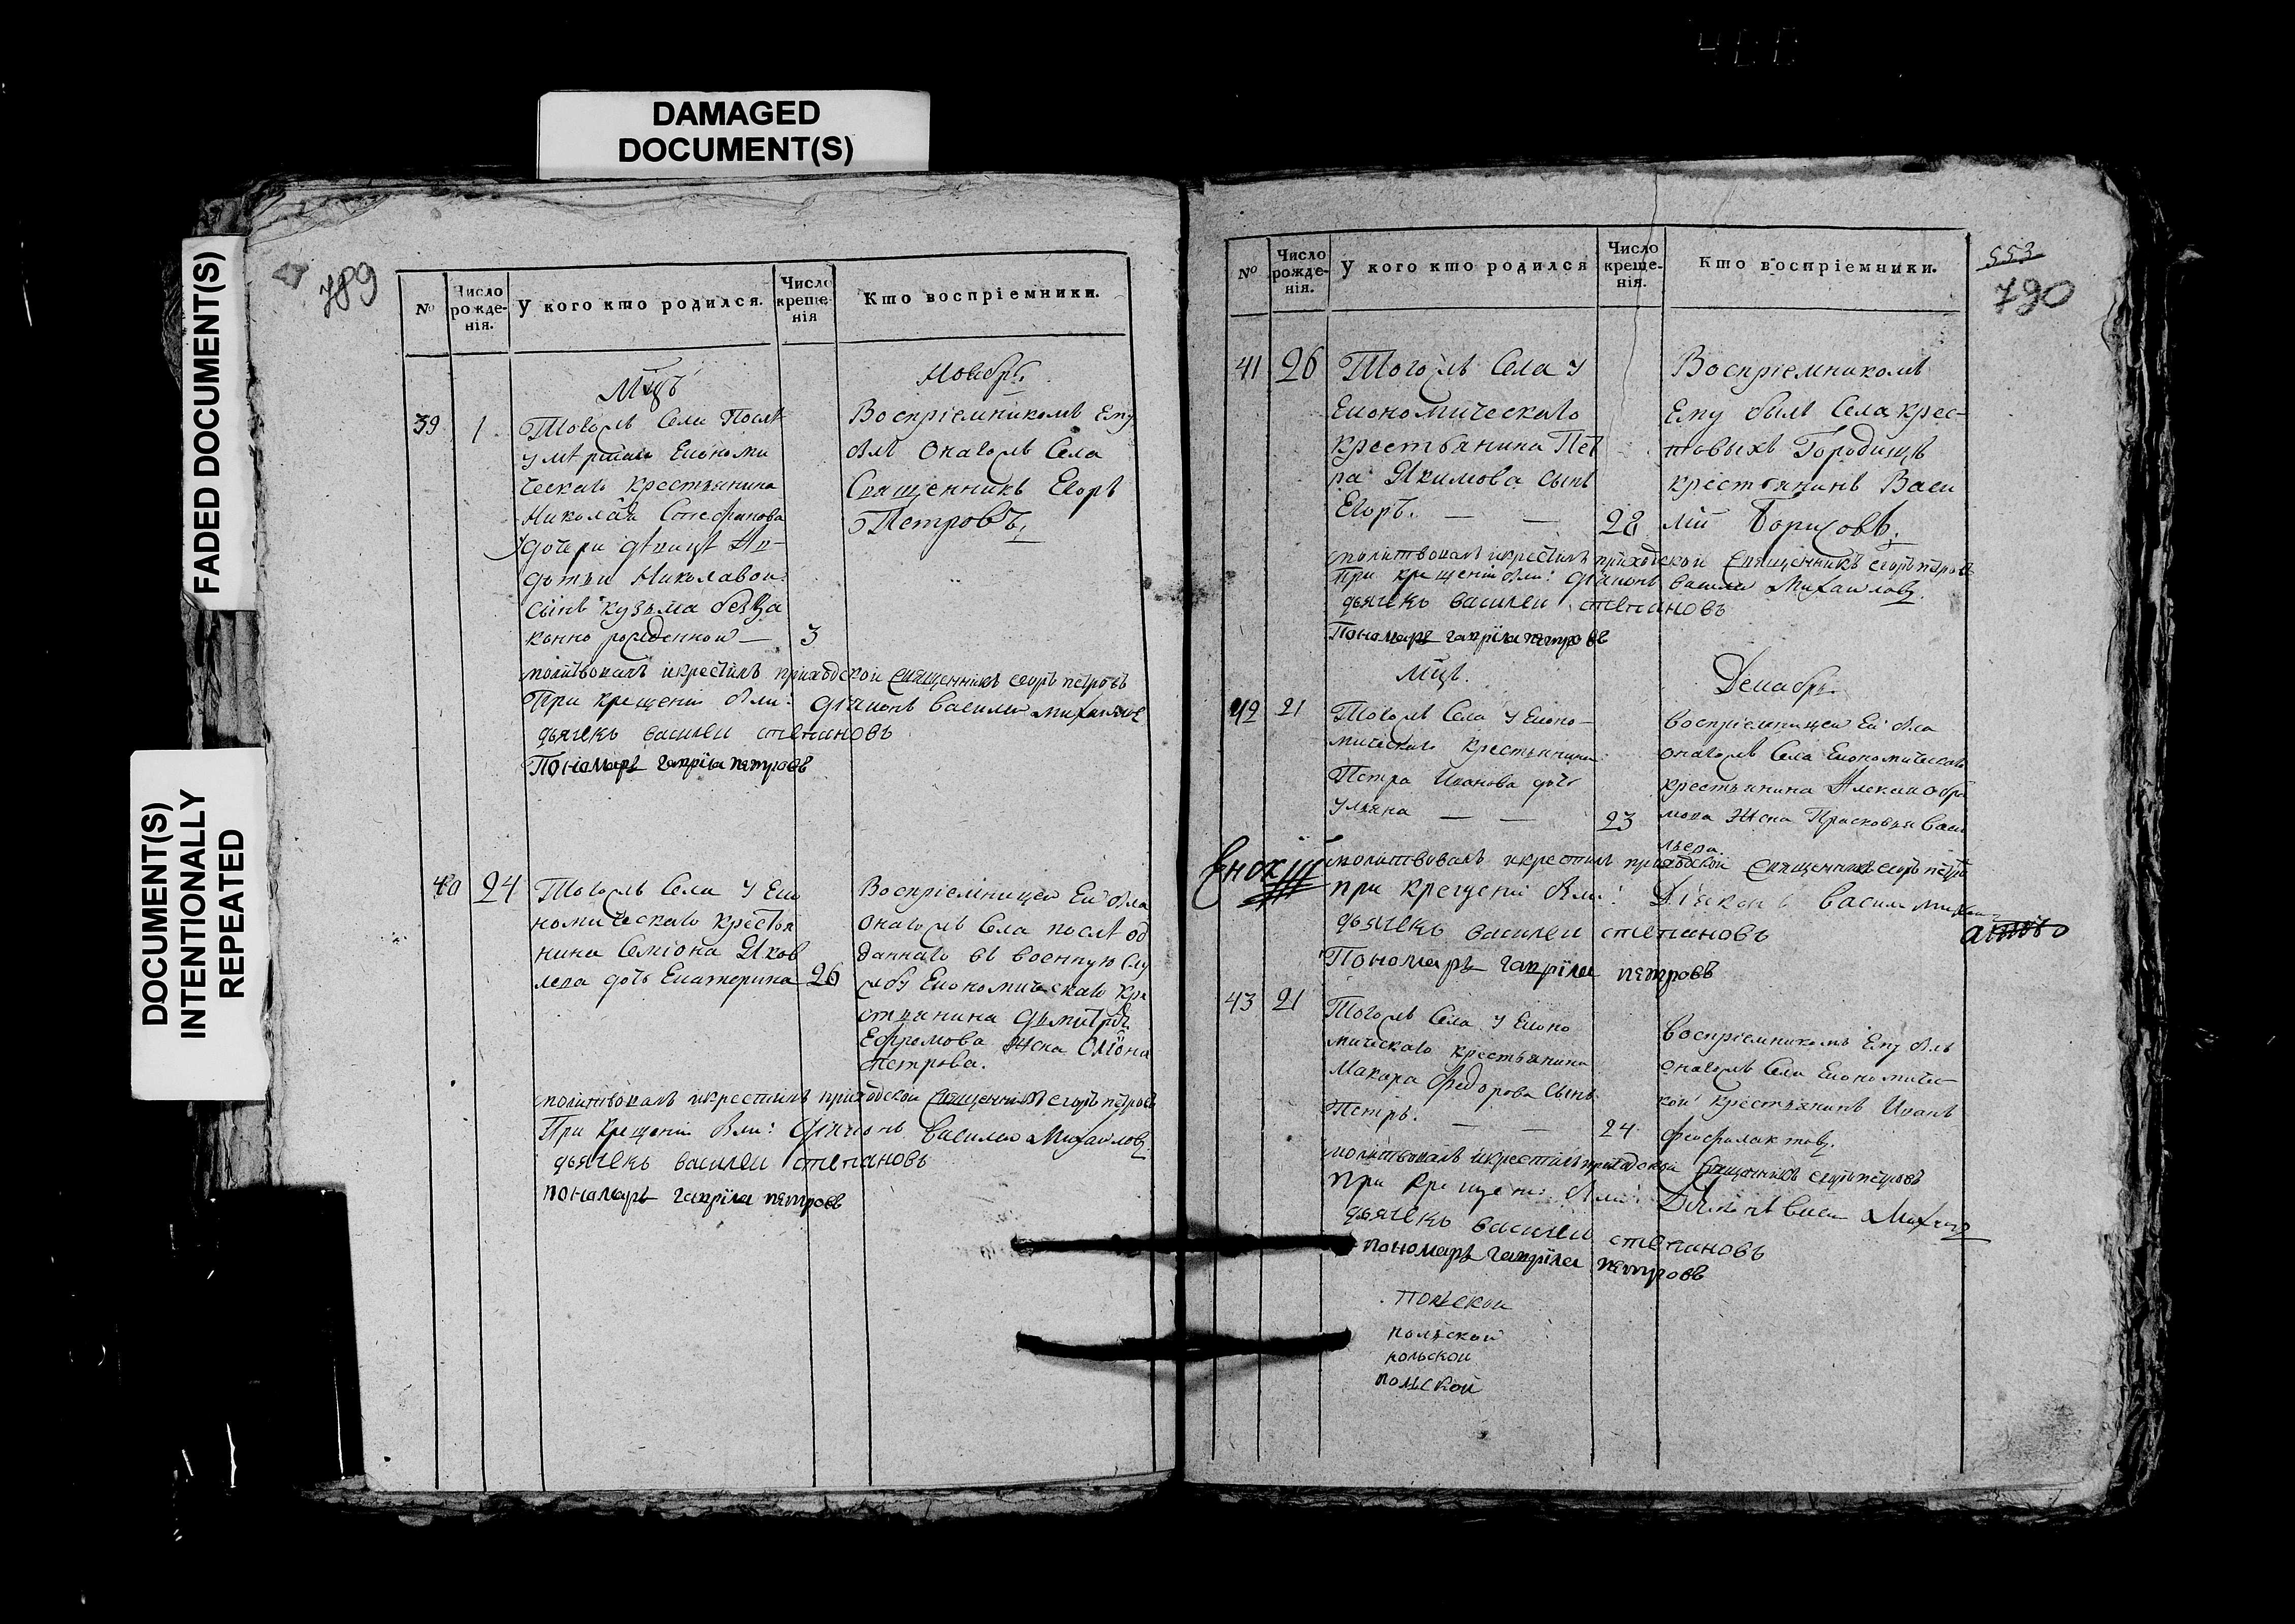 DAMAGED
DOCUMENT(S)
FADED DOCUMENT(S)
DOCUMENT(S)
INTENTIONALLY
REPEATED
789
№
Число рожде-нія.
У кого кто родился.
Число креще-нія
Кто воспріемники.
Мцъ
Ноябрь
39
1
Тогожъ Села После
умершаго Економи
ческаго крестьянина
Николая Стефанова
дочери девицы Ав-
дотьи Николавои
сынъ кузьма безза
конно рожденнои —
3
Воспріемникомъ Ему
былъ Онагожъ Села
Священникъ Егоръ
Петровъ.
молитвовалъ икрестилъ приходскои Священникъ егоръ петровъ
При крещеніи были: діаконъ василеи михаиловъ
дьячекъ василеи степановъ
Пономаръ гаврїла петровъ
40
24
Тогожъ Села У Еко
номическаго крестья
нина Семіона Яков
лева дочь Екатерина
26
Воспріемницеи Еи была
Онагожъ Села после од
даннаго въ военную Слу
жбу Економическаго Кре
стьянина Дмитрія
Ефремова Жена
Петрова.
молитвовалъ икрестилъ приходскои Священникъ егоръ петровъ
При крещеніи были: діаконъ василеи Михаиловъ
дьячекъ василеи степановъ
пономаръ гаврїла петровъ
553
790
№
Число рожде-нія.
У кого кто родился
Число креще-нія.
Кто воспріемники.
41
26
Тогожъ Села У
Економическаго
крестьянина Пет
ра Якимова сынъ
Егоръ. — —
28
Воспріемникомъ
Ему былъ Села крес-
товыхъ Городищъ
крестьянинъ Васи
лій Борисовъ.
молитвовалъ икрестилъ приходскои Священникъ егоръ петровъ
При крещеніи были: діаконъ василеи Михаиловъ.
дьячекъ василеи степановъ
Пономаръ гаврїла петровъ
Мцъ.
Декабрь.
42
21
Тогожъ Села У Еконо-
мическаго крестьянина
Петра Иванова дочь
Ульяна — —
23
воспріемницеи Еи была
онагожъ Села Економическаго
крестьянина
Жена Прасковья Васи
льева.
молитвовалъ икрестилъ приходскои Священникъ егоръ петровъ
при крещеніи были: Діаконъ васили
дьячекъ василеи степановъ
Пономаръ гаврїла петровъ
43
21
Тогожъ Села У Еконо
мическаго крестьянина
Макара Федорова Сынъ
Петръ. — —
24
воспріемникомъ Ему былъ
онагожъ Села Економичес-
кои крестьянинъ Иванъ
Феофилактовъ.
молитвовалъ икрестилъ приходскои Священникъ егоръ петровъ
при крещеніи были: Діаконъ
дьячекъ василеи степановъ
пономаръ гаврїла петровъ
польской
польской
польской